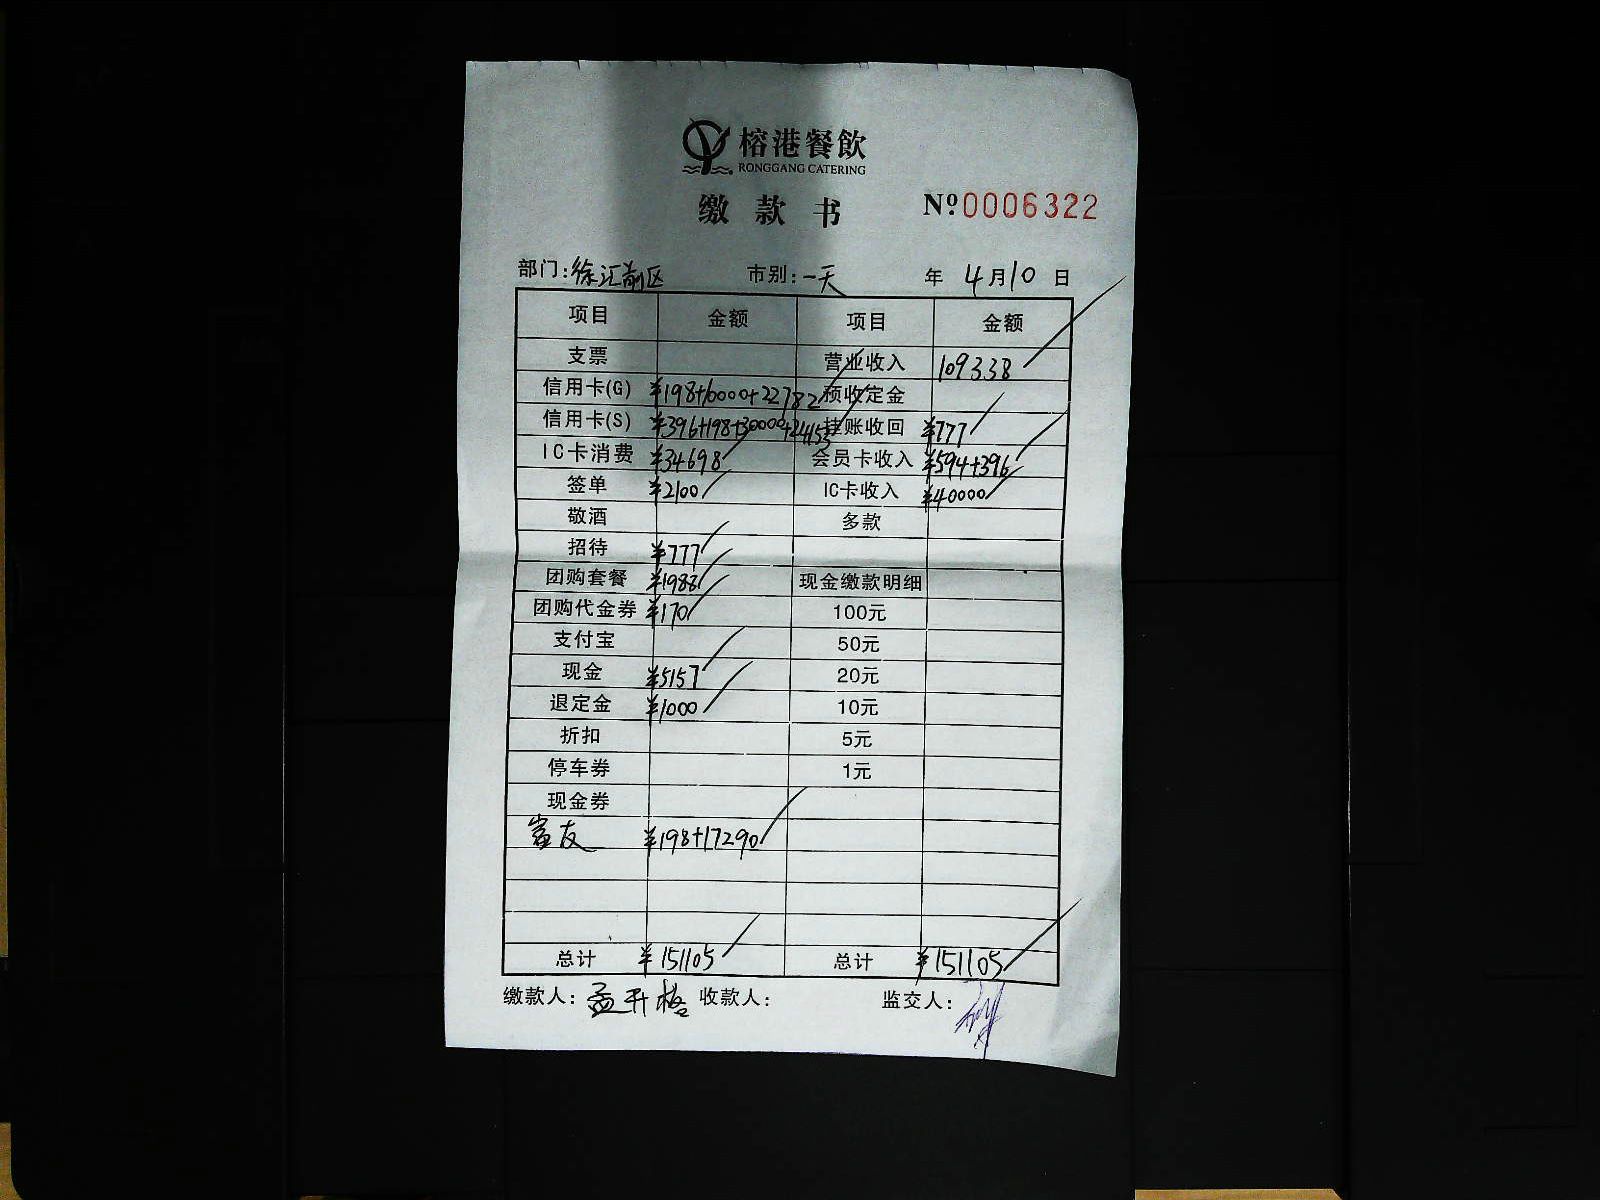 榕港餐飲
RONGGANG CATERING
缴款书 Nº 0006322
部门:徐汇前区 市别:一天 年 4月10日
项目 金额 项目 金额
支票 营业收入 109338
信用卡(G) ¥198+10000+22782 预收定金
信用卡(S) ¥396+198+30000+24155 挂账收回 ¥777
IC卡消费 ¥34698 会员卡收入 ¥594+396
签单 ¥2100 IC卡收入 ¥40000
敬酒 多款
招待 ¥777
团购套餐 ¥1988 现金缴款明细
团购代金券 ¥170 100元
支付宝 50元
现金 ¥5157 20元
退定金 ¥1000 10元
折扣 5元
停车券 1元
现金券
富友 ¥198+17290
总计 ¥151105 总计 ¥151105
缴款人: 孟开格 收款人: 监交人: